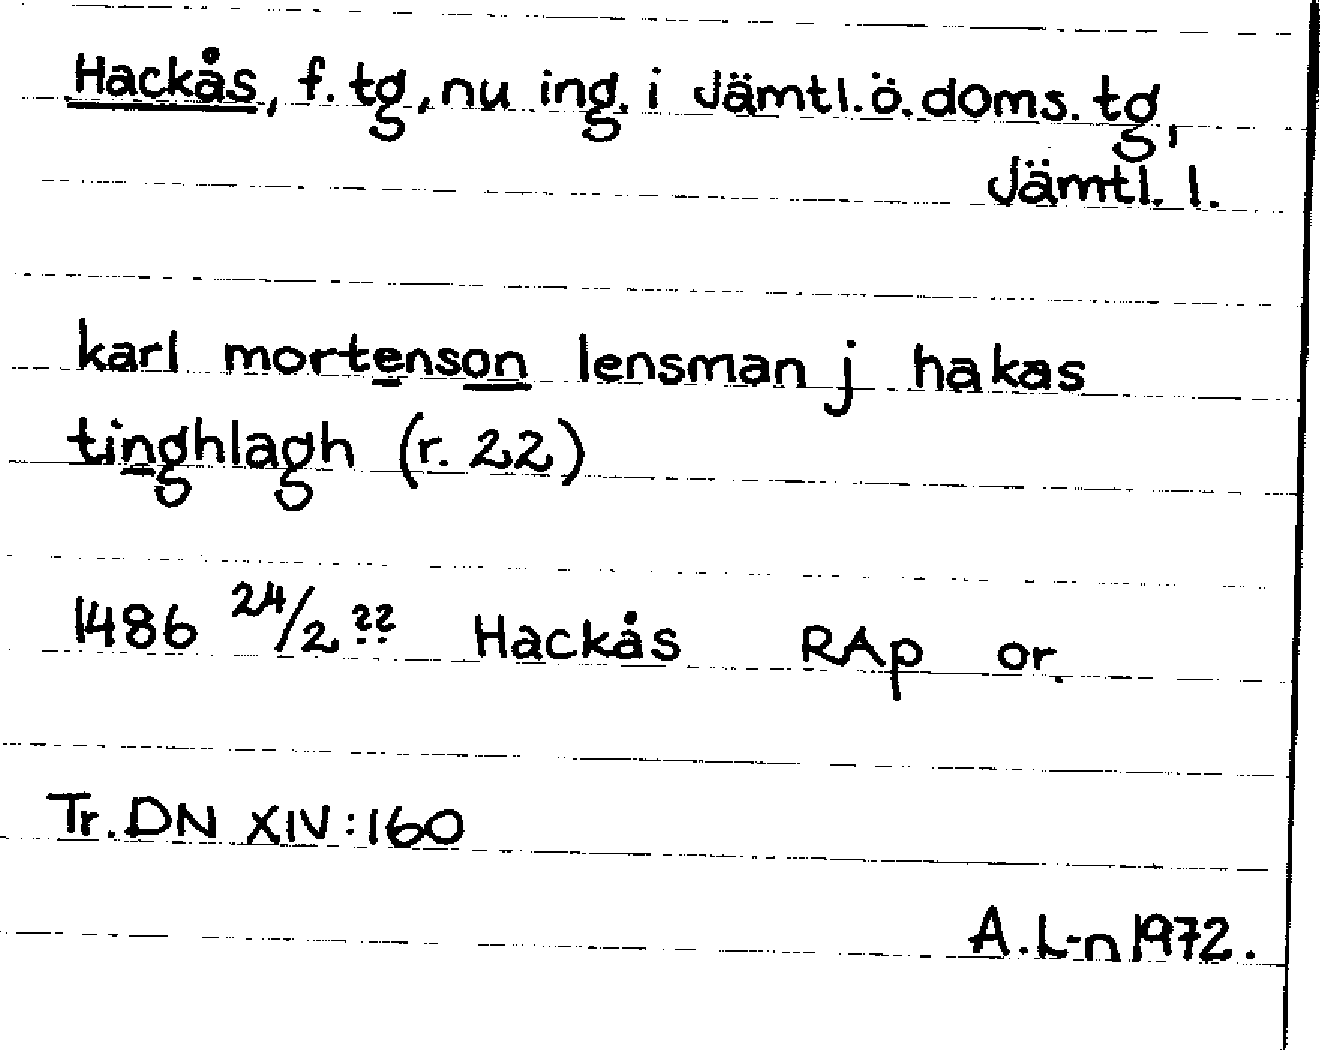 Hackås, f. tg, nu ing. i Jämtl. ö. doms. tg,
Jämtl. l.
karl mortenson lensman j hakas
tinghlagh (r. 22)
1486 24/2 ?? Hackås RAp or.
Tr. DN XIV:160
A. L-n 1972.